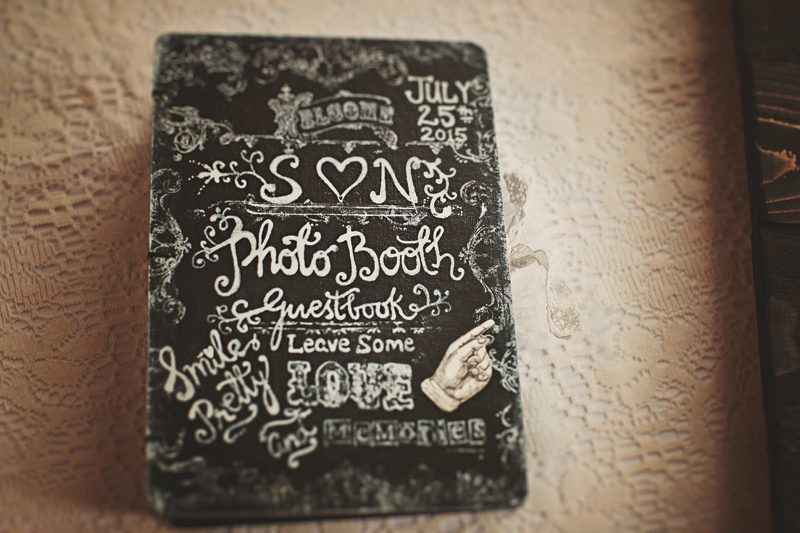 WELCOME
JULY
25th
2015
S ♡ N
Photo Booth
Guestbook
Leave Some
Smile
Pretty
LOVE
and
MEMORIES